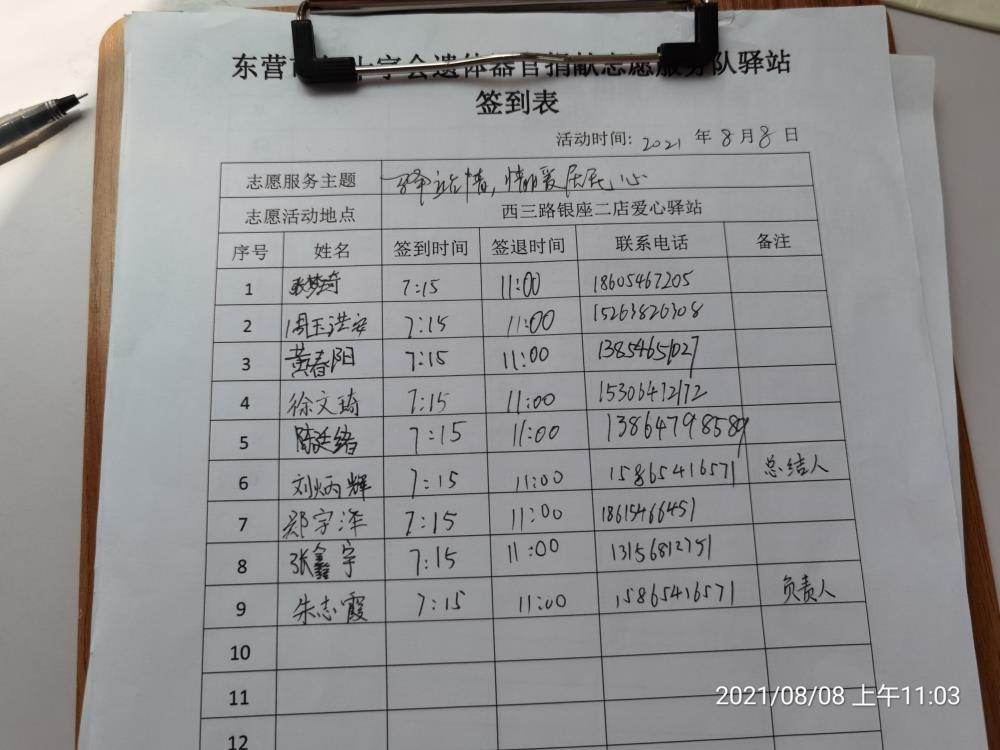 东营市红十字会遗体器官捐献志愿服务队驿站
签到表
活动时间: 2021 年 8 月 8 日
志愿服务主题 驿站情,情暖居民心
志愿活动地点 西三路银座二店爱心驿站
序号 姓名 签到时间 签退时间 联系电话 备注
1 7:15 11:00 18605467205
2 周玉洪安 7:15 11:00 15263826308
3 黄春阳 7:15 11:00 13854651027
4 徐文琦 7:15 11:00 15306472172
5 陈廷绪 7:15 11:00 13864798589
6 刘炳辉 7:15 11:00 15865416571 总结人
7 郑宇泽 7:15 11:00 18615466451
8 张鑫宇 7:15 11:00 13156812751
9 朱志霞 7:15 11:00 15865416571 负责人
10
11
12
2021/08/08 上午11:03